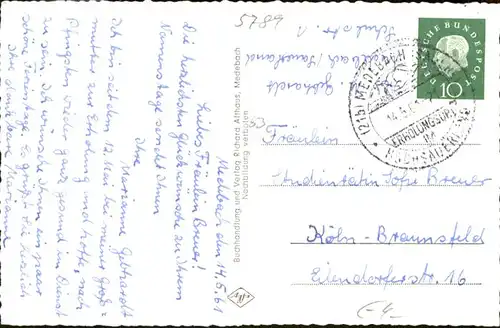 5789
Medebach den 14.5.61
Liebes Fräulein Bauer!
Die herzlichsten Glückwünsche zu Ihrem
Namenstage sendet Ihnen
Ihre
Marianne Gebhardt
Ich bin seit dem 12. Mai bei meiner Groß-
mutter zur Erholung und hoffe, nach
Pfingsten wieder ganz gesund im Dienst
zu sein. Ich wünsche Ihnen ein paar
schöne Feiertage. Es grüßt Sie herzlich
Ihre dankbare Marianne
Buchhandlung und Verlag Richard Althaus, Medebach
Nachbildung verboten
Gebhardt
Medebach/Sauerland
Schulstr. 1
DEUTSCHE BUNDESPOST
10
MEDEBACH
ERHOLUNGSORT
IM
HOCHSAUERLAND
Fräulein
Studienrätin Sofie Breuer
Köln-Braunsfeld
Eilendorferstr. 16